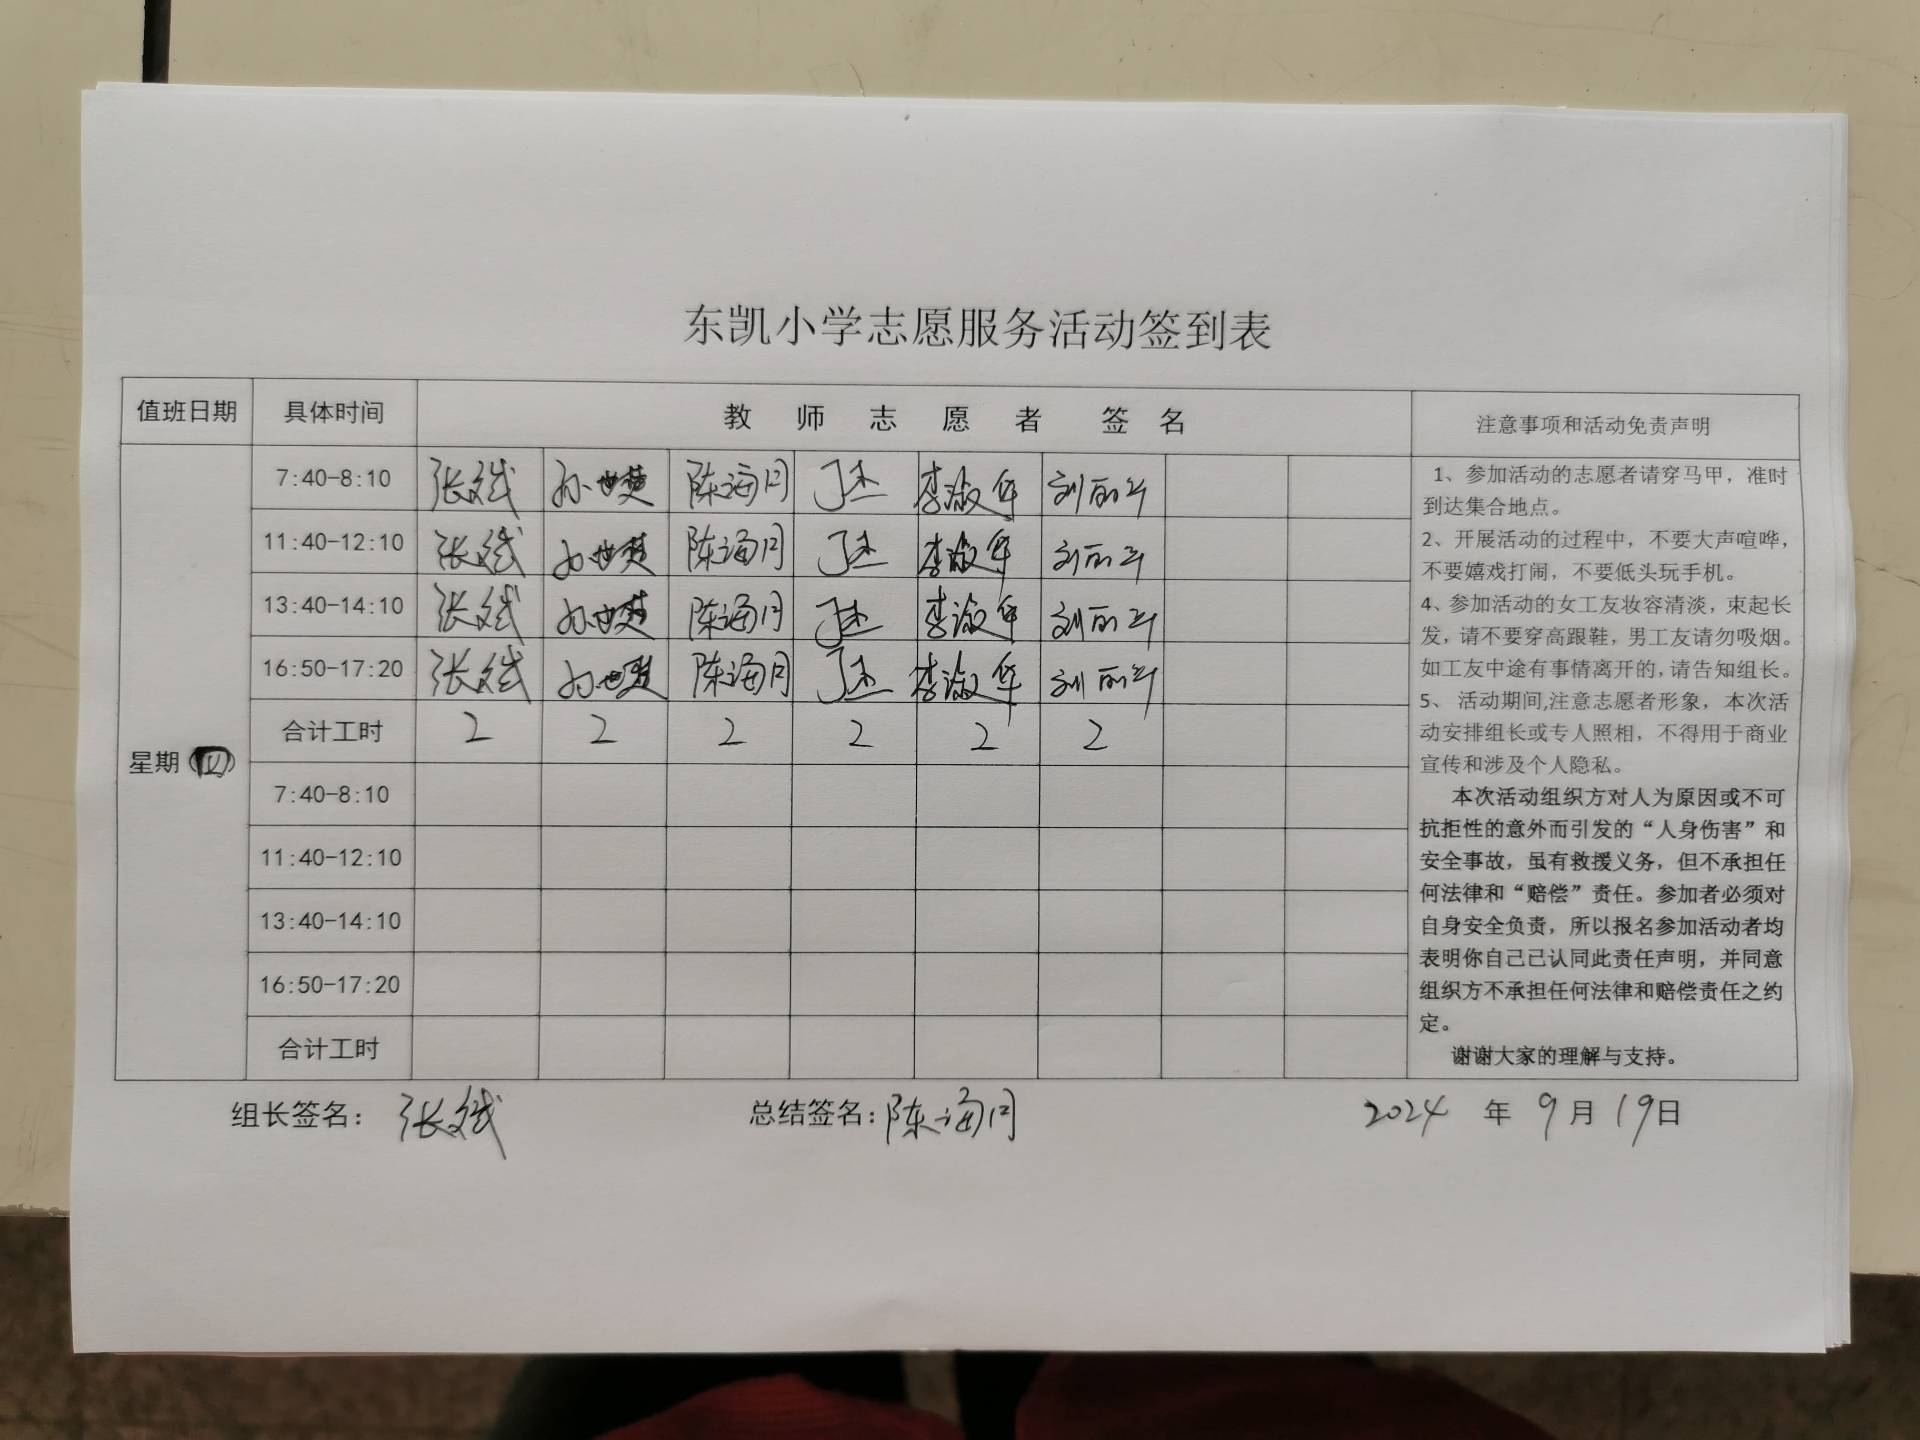 东凯小学志愿服务活动签到表
值班日期 具体时间 教师志愿者签名 注意事项和活动免责声明
星期（四）
7:40-8:10 张斌 孙世楚 陈海闪 丁杰 李淑华 刘丽云
11:40-12:10 张斌 孙世楚 陈海闪 丁杰 李淑华 刘丽云
13:40-14:10 张斌 孙世楚 陈海闪 丁杰 李淑华 刘丽云
16:50-17:20 张斌 孙世楚 陈海闪 丁杰 李淑华 刘丽云
合计工时 2 2 2 2 2 2
7:40-8:10
11:40-12:10
13:40-14:10
16:50-17:20
合计工时
1、参加活动的志愿者请穿马甲，准时
到达集合地点。
2、开展活动的过程中，不要大声喧哗，
不要嬉戏打闹，不要低头玩手机。
4、参加活动的女工友妆容清淡，束起长
发，请不要穿高跟鞋，男工友请勿吸烟。
如工友中途有事情离开的，请告知组长。
5、 活动期间,注意志愿者形象，本次活
动安排组长或专人照相，不得用于商业
宣传和涉及个人隐私。
本次活动组织方对人为原因或不可
抗拒性的意外而引发的“人身伤害”和
安全事故，虽有救援义务，但不承担任
何法律和“赔偿”责任。参加者必须对
自身安全负责，所以报名参加活动者均
表明你自己已认同此责任声明，并同意
组织方不承担任何法律和赔偿责任之约
定。
谢谢大家的理解与支持。
组长签名： 张斌 总结签名：陈海闪 2024 年 9 月 19日